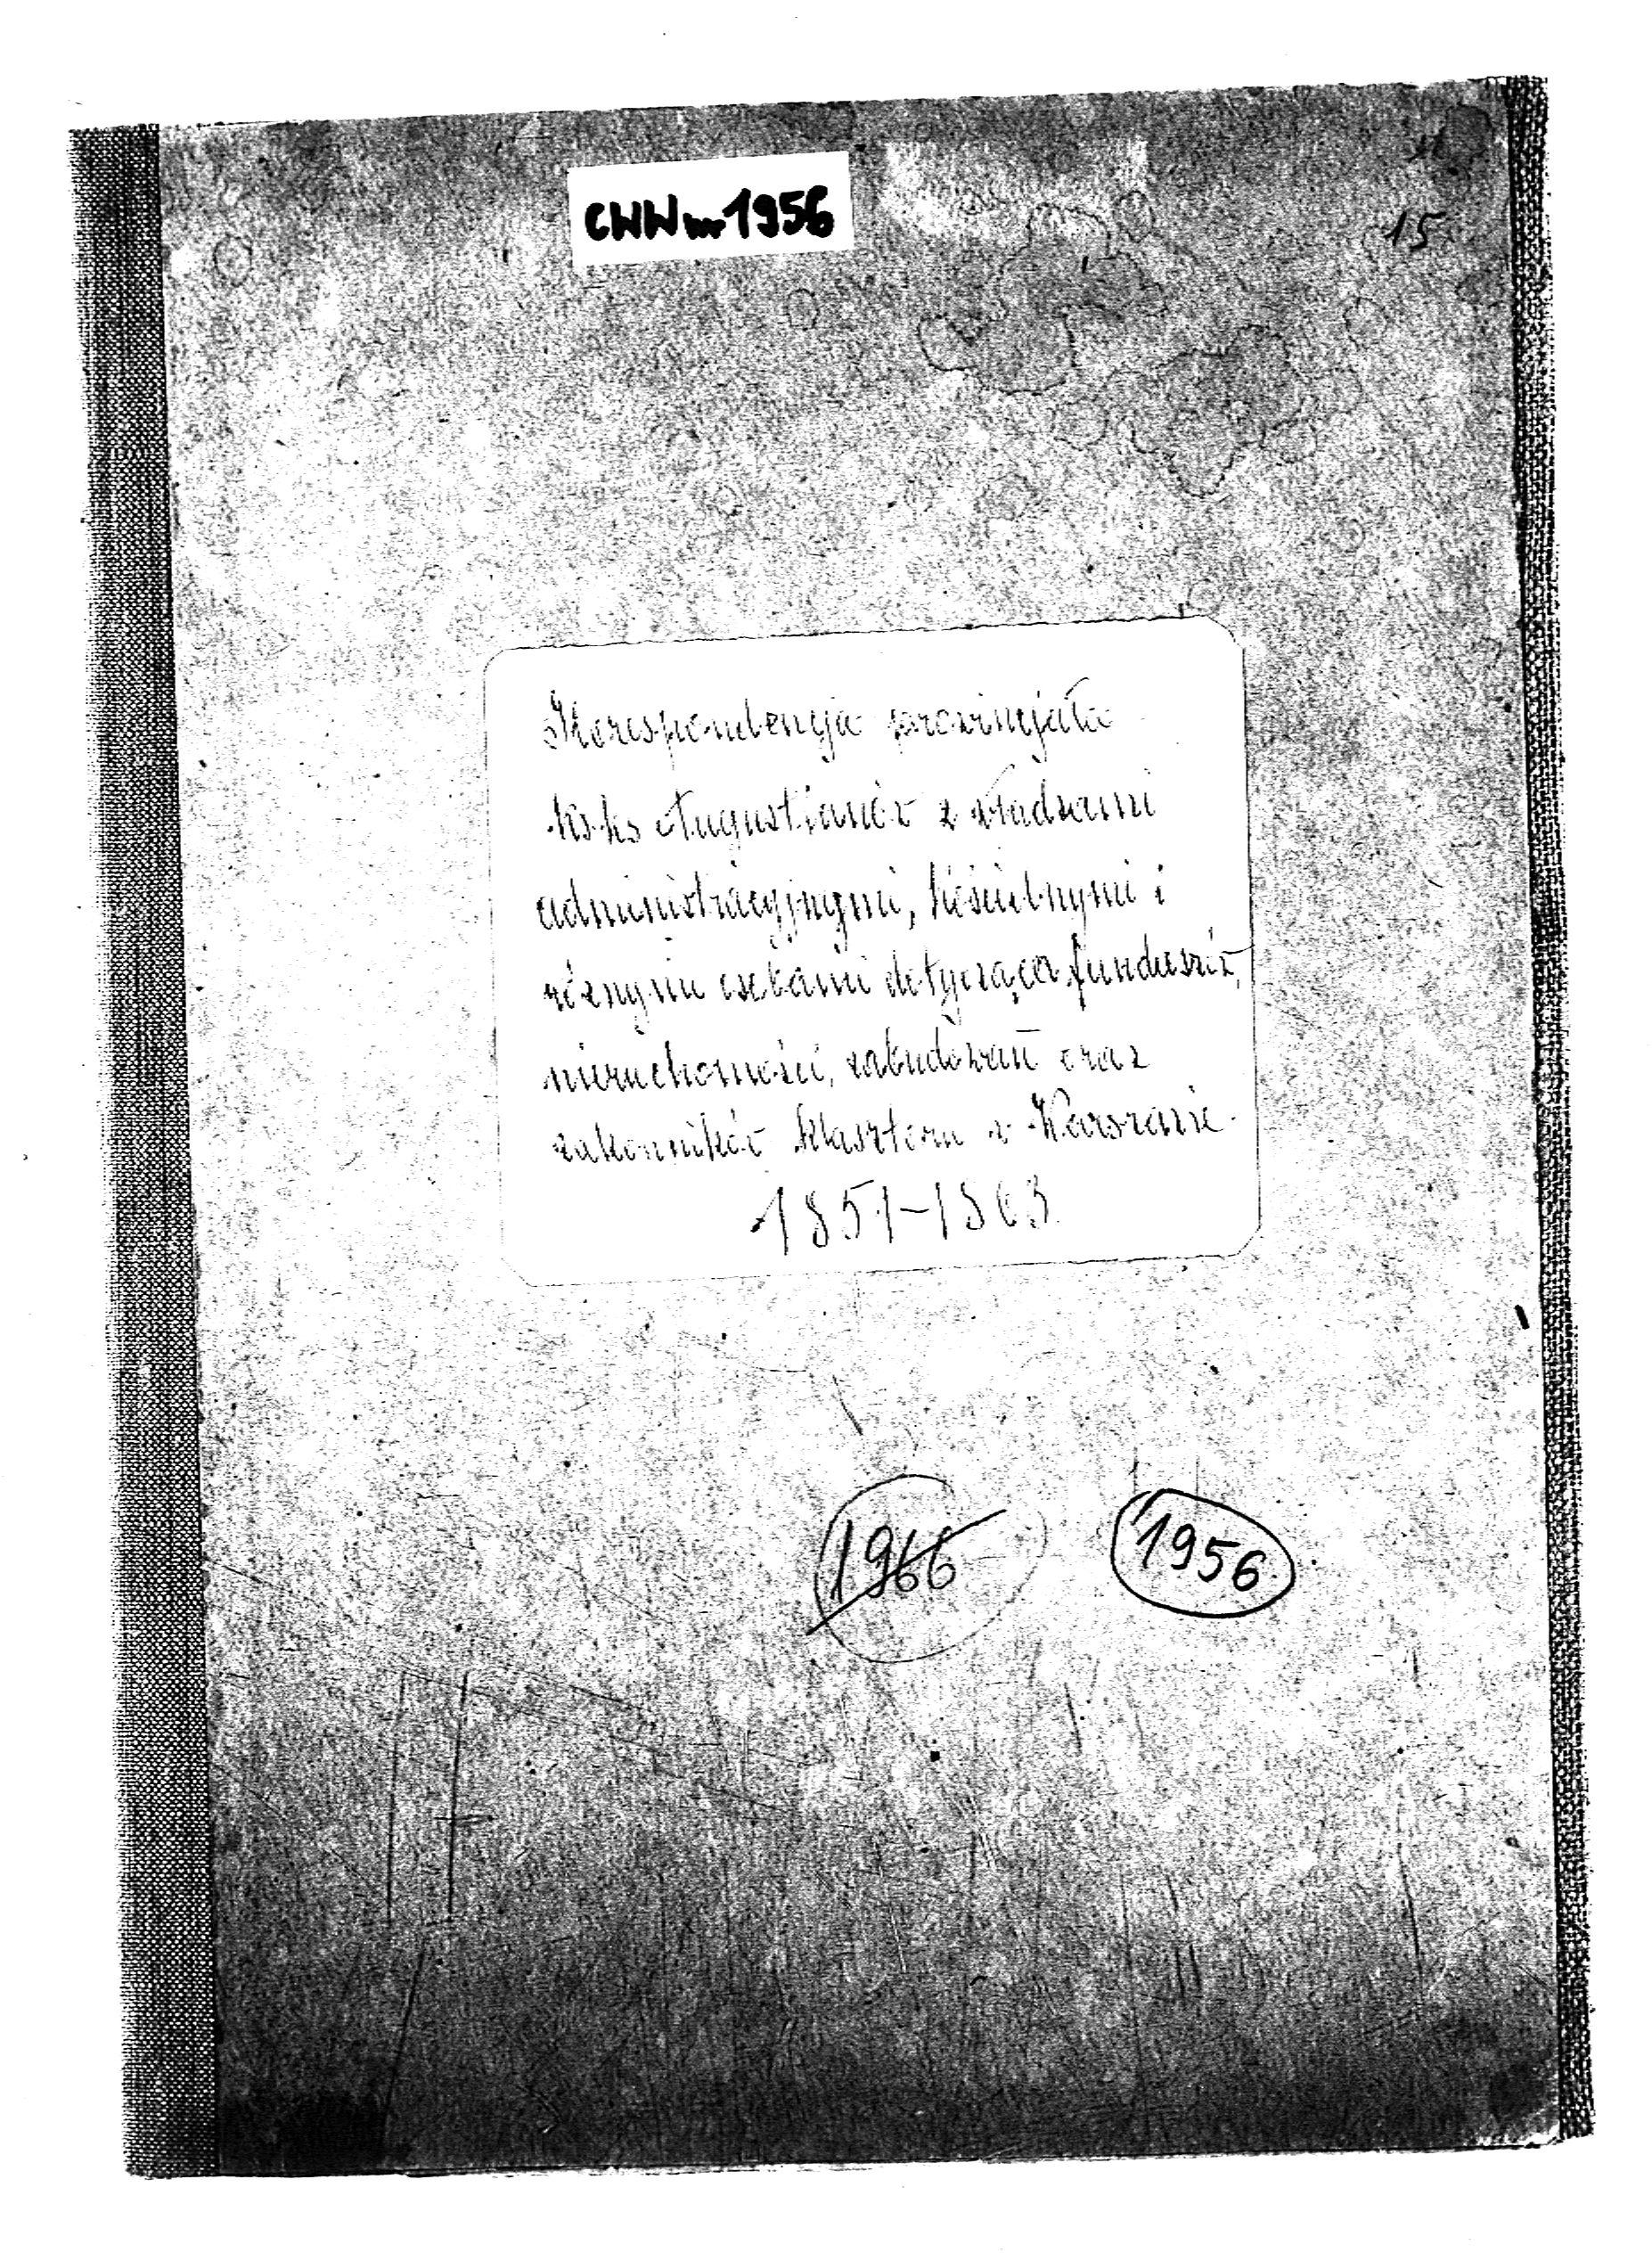 CWW nr 1956
15
Korespondencja prowincjała
ks.ks Augustianów z władzami
administracyjnymi, kościelnymi i
różnymi osobami dotycząca funduszów,
nieruchomości, zabudowań oraz
zakonników klasztoru w Warszawie.
1851-1863
1966
1956.